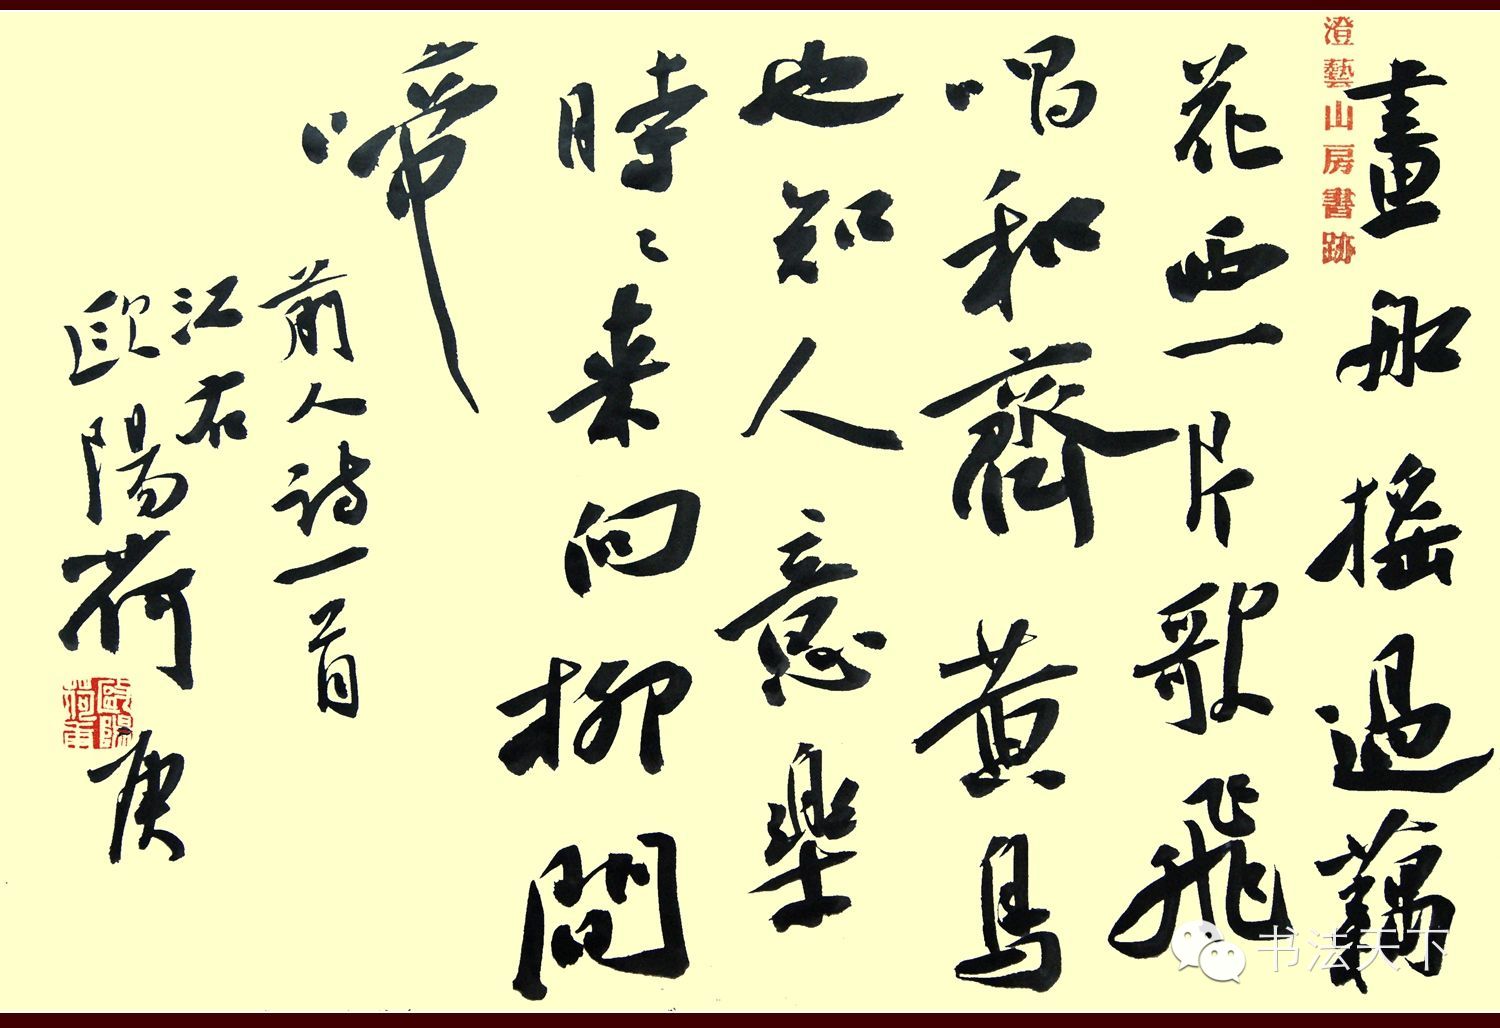 畫船搖過藕
花西一片歌飛
唱和齊黃鳥
也知人意樂
時〻来向柳間
啼
前人詩一首
江右
歐陽荷庚
澄藝山房書跡
歐陽荷庚
书法天下